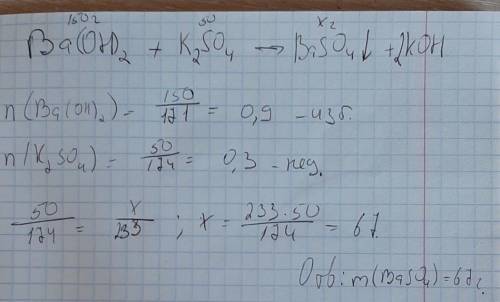 150г 50 x г
Ba(OH)₂ + K₂SO₄ → BaSO₄↓ + 2KOH
n(Ba(OH)₂) = 150/171 = 0,9 – изб.
n(K₂SO₄) = 50/174 = 0,3 – нед.
50/174 = x/233 ; x = 233·50/174 = 67.
Отв: m(BaSO₄) = 67г.